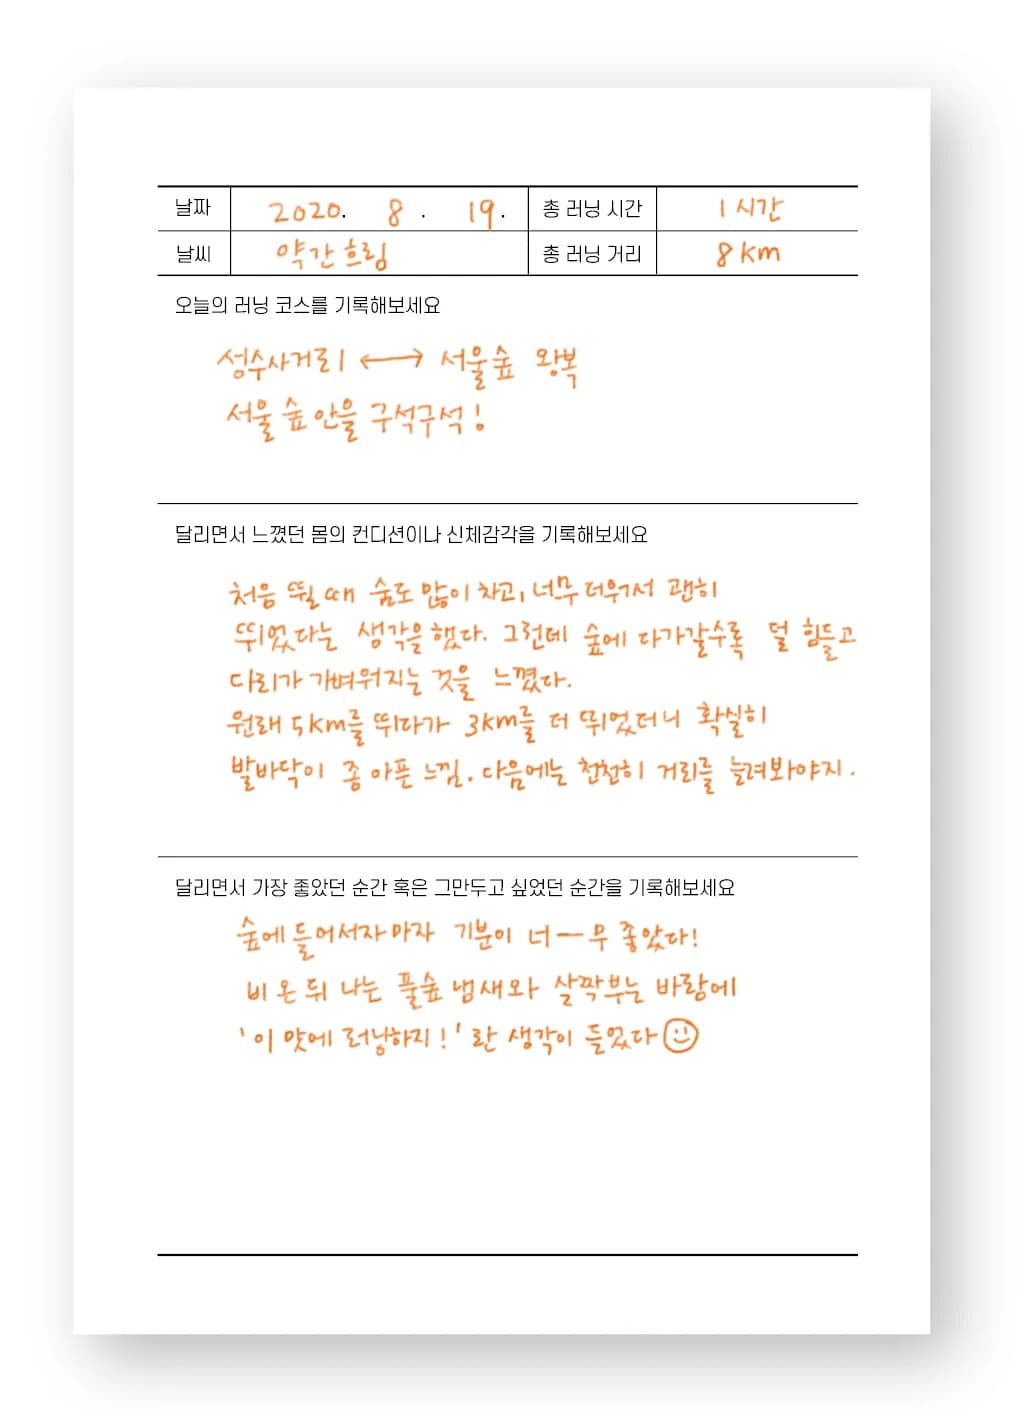 날짜 2020. 8. 19. 총 러닝 시간 1시간
날씨 약간흐림 총 러닝 거리 8km
오늘의 러닝 코스를 기록해보세요
성수사거리 ↔ 서울숲 왕복
서울숲안을 구석구석!
달리면서 느꼈던 몸의 컨디션이나 신체감각을 기록해보세요
처음 뛸때 숨도 많이 차고, 너무 더워서 괜히
뛰었다는 생각을 했다. 그런데 숲에 다가갈수록 덜 힘들고
다리가 가벼워지는 것을 느꼈다.
원래 5km를 뛰다가 3km를 더 뛰었더니 확실히
발바닥이 좀 아픈 느낌. 다음에는 천천히 거리를 늘려봐야지.
달리면서 가장 좋았던 순간 혹은 그만두고 싶었던 순간을 기록해보세요
숲에 들어서자마자 기분이 너—무 좋았다!
비 온 뒤 나는 풀숲 냄새와 살짝부는 바람에
'이 맛에 러닝하지!'란 생각이 들었다☺